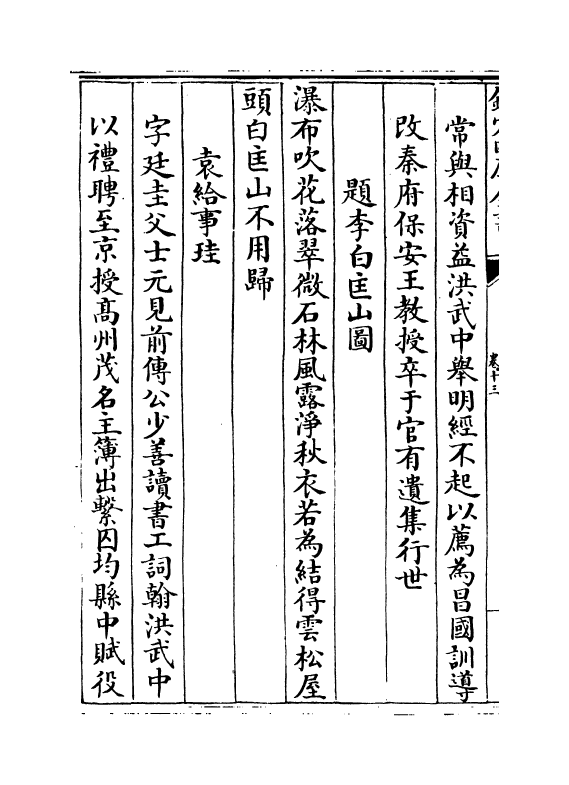 常與相資益洪武中舉明經不起以薦為昌國訓導
改秦府保安王教授卒于官有遺集行世
題李白匡山圖
瀑布吹花落翠微石林風露淨秋衣若為結得雲松屋
頭白匡山不用歸
袁給事珪
字廷圭父士元見前傳公少善讀書工詞翰洪武中
以禮聘至京授髙州茂名主簿出繫囚均縣中賦役
卷十三